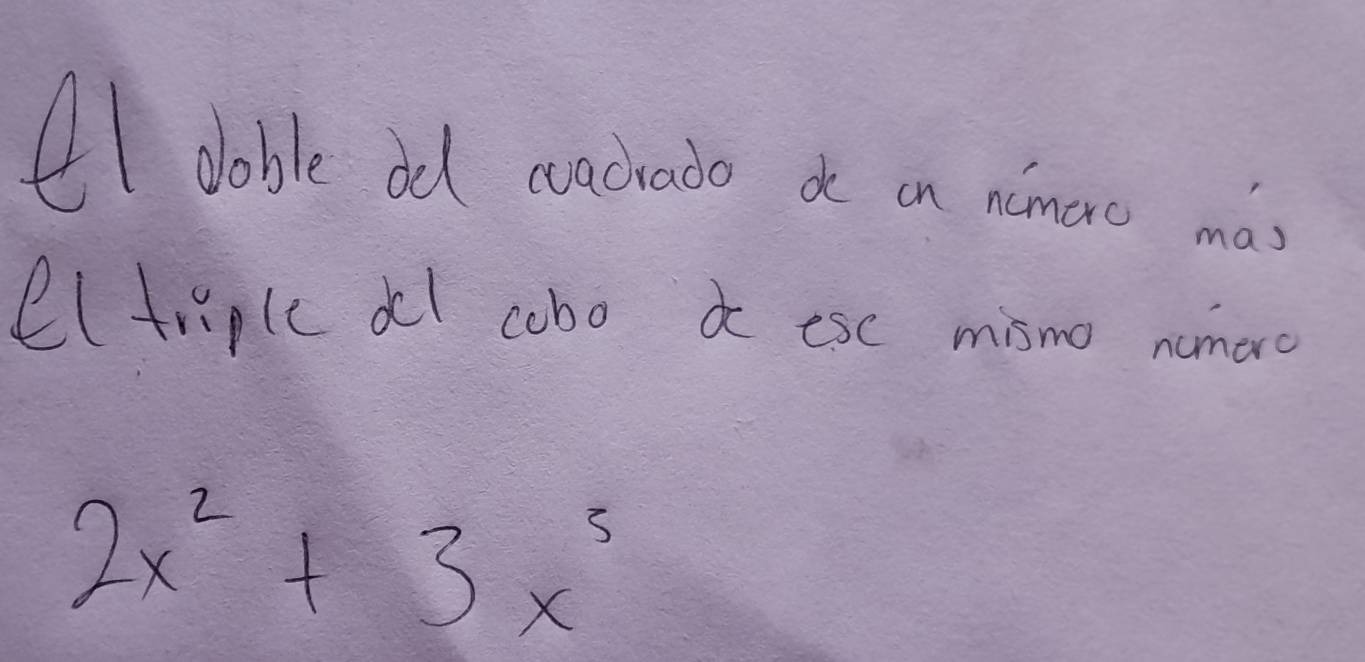 El doble del cuadrado de un número más
El triple del cubo de ese mismo número
2x² + 3x³